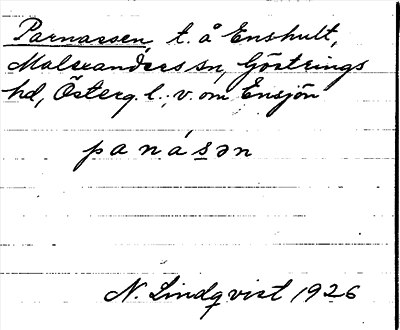 Parnassen, t. å Enshult,
Malexanders sn, Göstrings
hd, Österg. l., v. om Ensjön
panásən
N. Lindqvist 1926